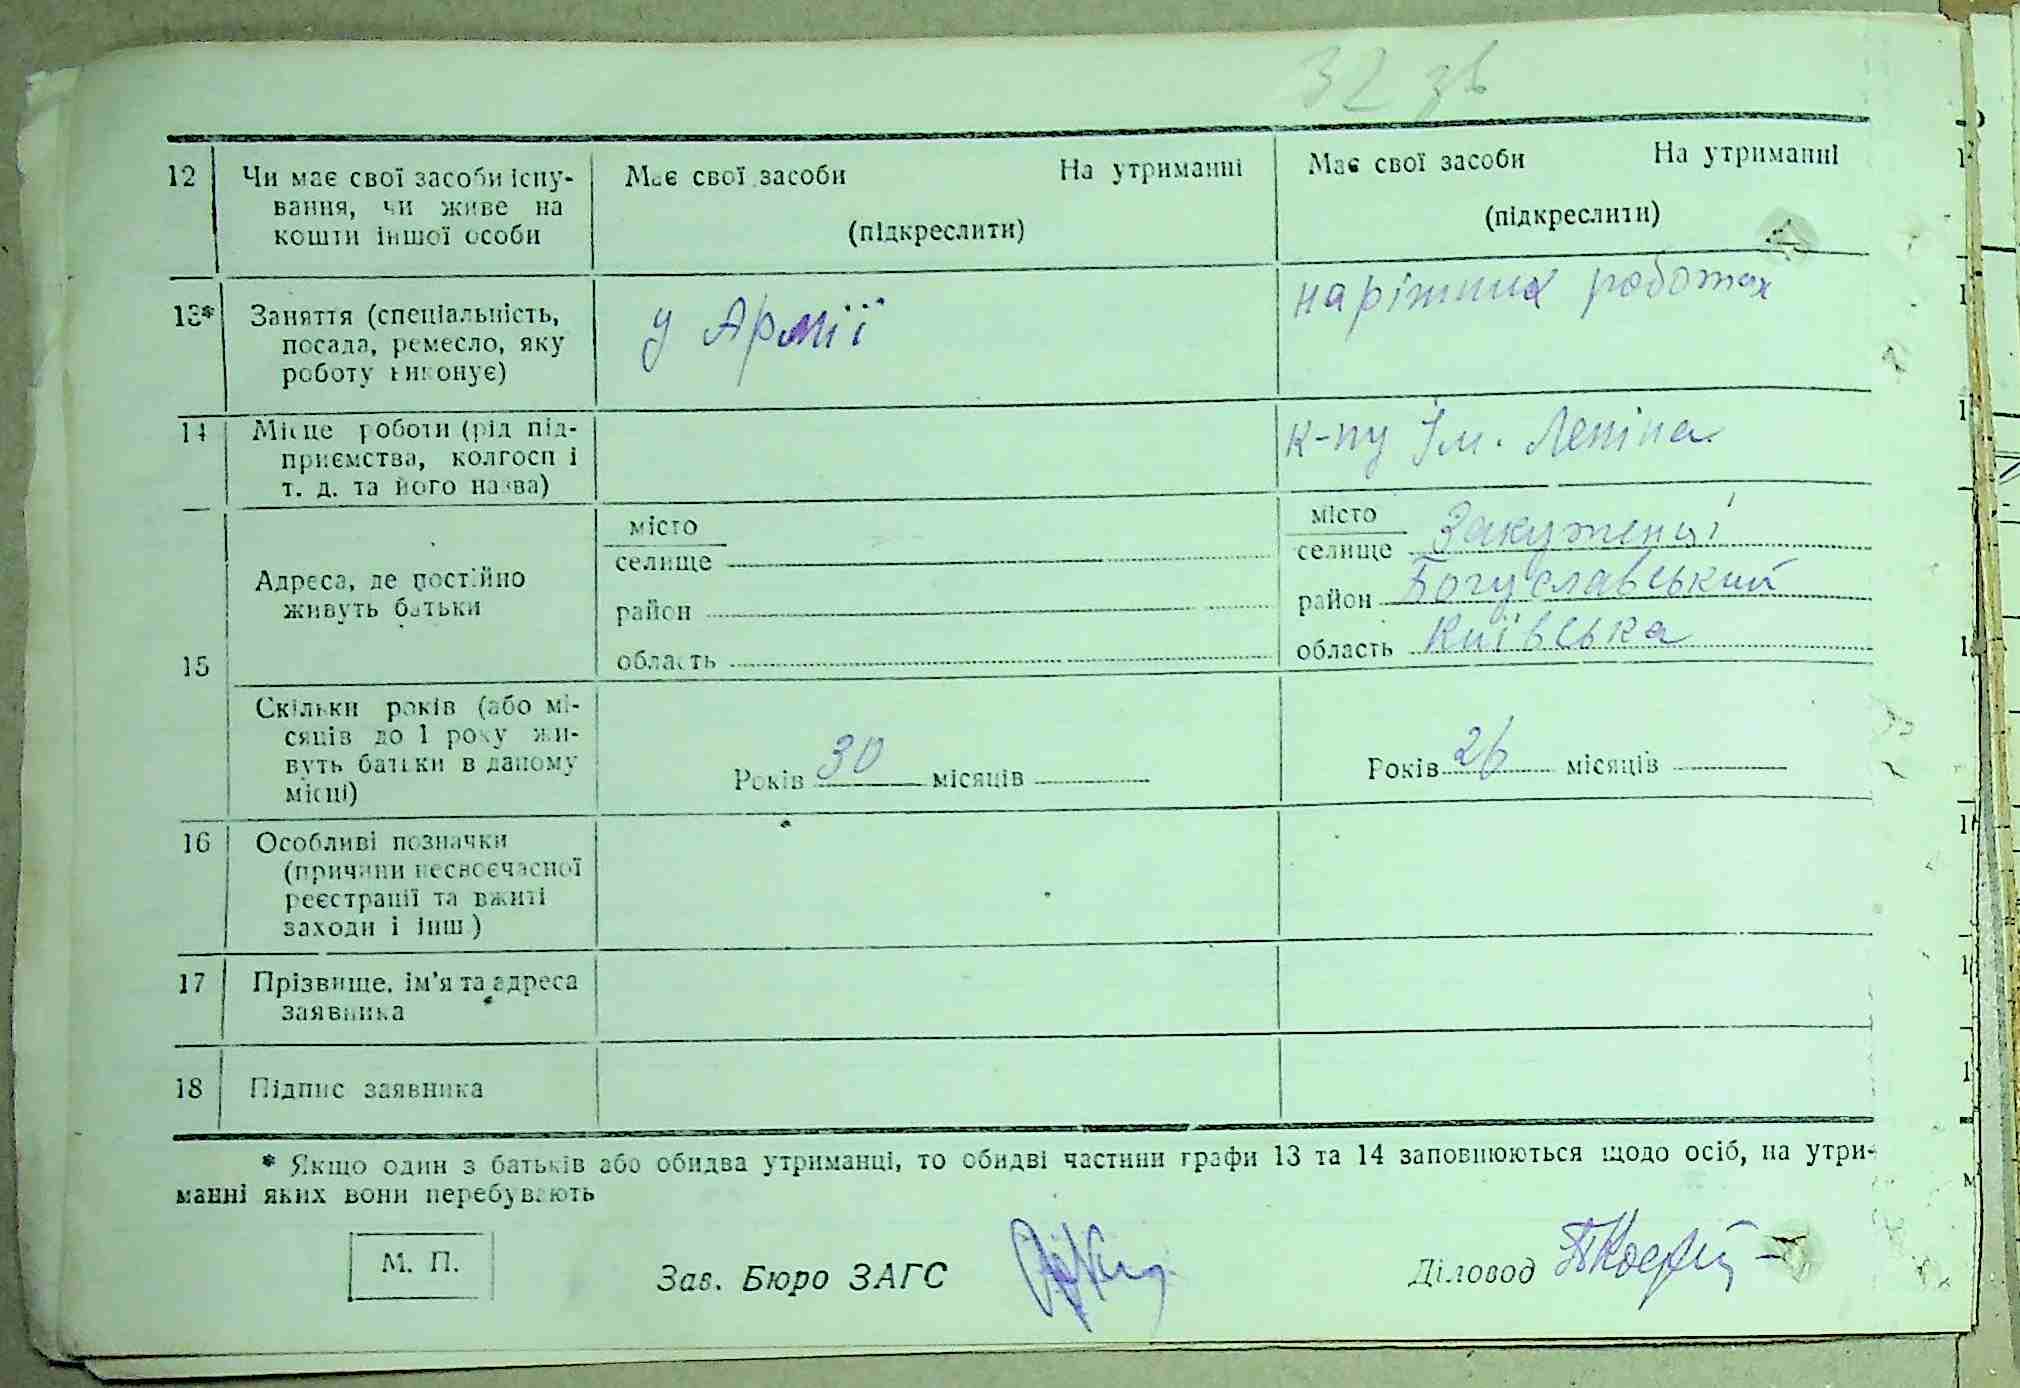 32 зв
12 Чи має свої засоби існу- Має свої засоби На утриманні Має свої засоби На утриманні
вання, чи живе на (підкреслити) (підкреслити)
кошти іншої особи
13* Заняття (спеціальність, у Армії на ріжних роботах
посада, ремесло, яку
роботу виконує)
14 Місце роботи (рід під- к-пу Ім. Леніна
приємства, колгосп і
т. д. та його назва)
15 Адреса, де постійно
живуть батьки
місто
селище
район
область
місто
селище Закутенці
район Богуславський
область Київська
Скільки років (або мі-
сяців до 1 року жи-
вуть батьки в даному
місці)
Років 30 місяців Років 26 місяців
16 Особливі позначки
(причини несвоєчасної
реєстрації та вжиті
заходи і інш.)
17 Прізвище, ім'я та адреса
заявника
18 Підпис заявника
* Якщо один з батьків або обидва утриманці, то обидві частини графи 13 та 14 заповнюються щодо осіб, на утри-
манні яких вони перебувають
М. П. Зав. Бюро ЗАГС Діловод